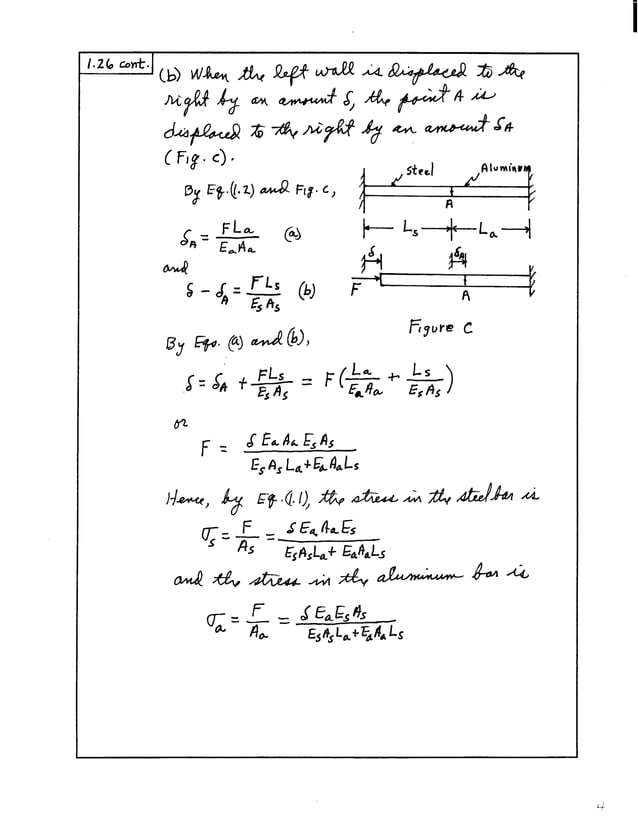 1.26 cont.
(b) When the left wall is displaced to the
right by an amount δ, the point A is
displaced to the right by an amount δA
(Fig. c).
By Eq. (1.2) and Fig. c,
δA = FLa / EaAa (a)
and
δ - δA = FLs / EsAs (b)
Steel
Aluminum
A
Ls
La
δ
δA
F
A
Figure C
By Eqs. (a) and (b),
δ = δA + FLs / EsAs = F(La / EaAa + Ls / EsAs)
or
F = δ EaAa EsAs / EsAsLa+EaAaLs
Hence, by Eq. (1.1), the stress in the steel bar is
σs = F / As = δEaAaEs / EsAsLa+ EaAaLs
and the stress in the aluminum bar is
σa = F / Aa = δEaEsAs / EsAsLa+EaAaLs
4